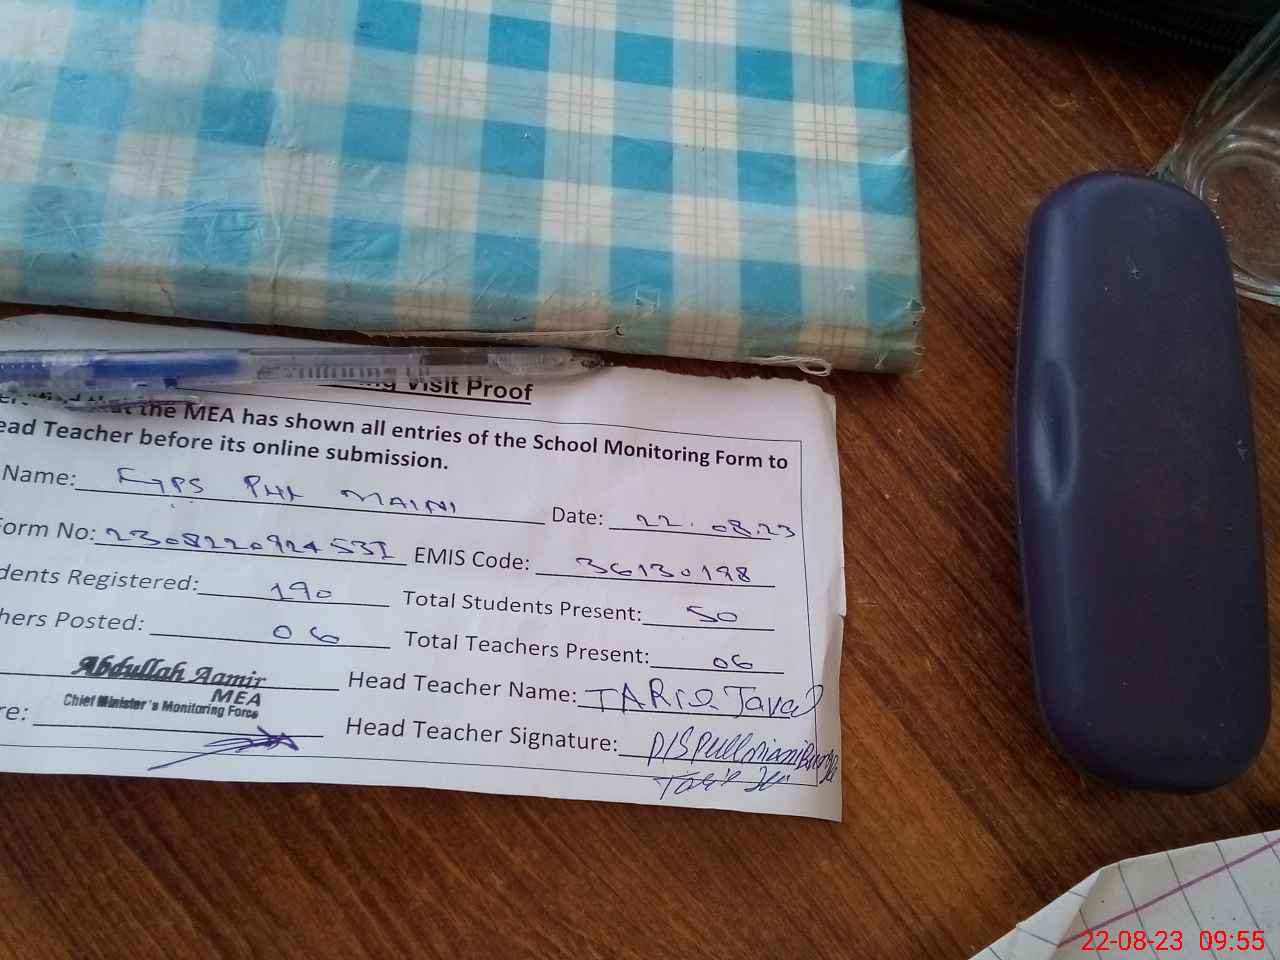 ng Visit Proof
that the MEA has shown all entries of the School Monitoring Form to
ead Teacher before its online submission.
Name: GPS PHK MAINI Date: 22.08.23
Form No: 230822092453I EMIS Code: 36130198
dents Registered: 190 Total Students Present: 50
hers Posted: 06 Total Teachers Present: 06
Abdullah Aamir
MEA
Chief Minister's Monitoring Force
Head Teacher Name: TARIQ Javed
re: Head Teacher Signature:
22-08-23 09:55